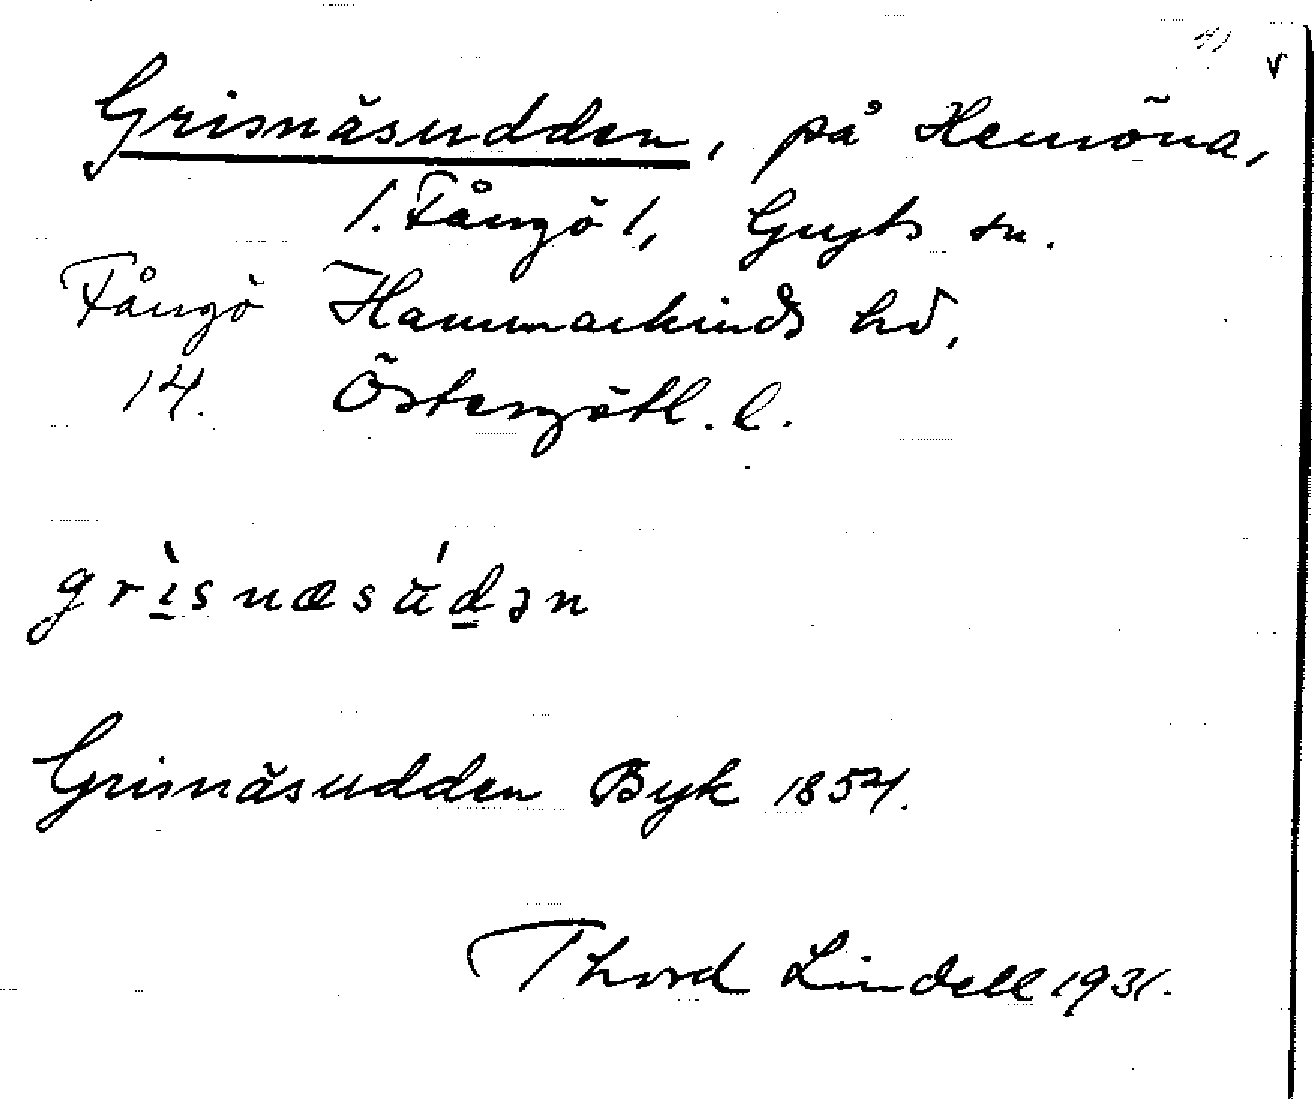 Grisnäsudden, på Hemöna,
1. Fångö 1, Gryts sn.
Fångö Hammarkinds hd,
14. Östergötl. l.
grìsnæsúdən
Grisnäsudden Byk 1854.
Thord Lindell 1931.